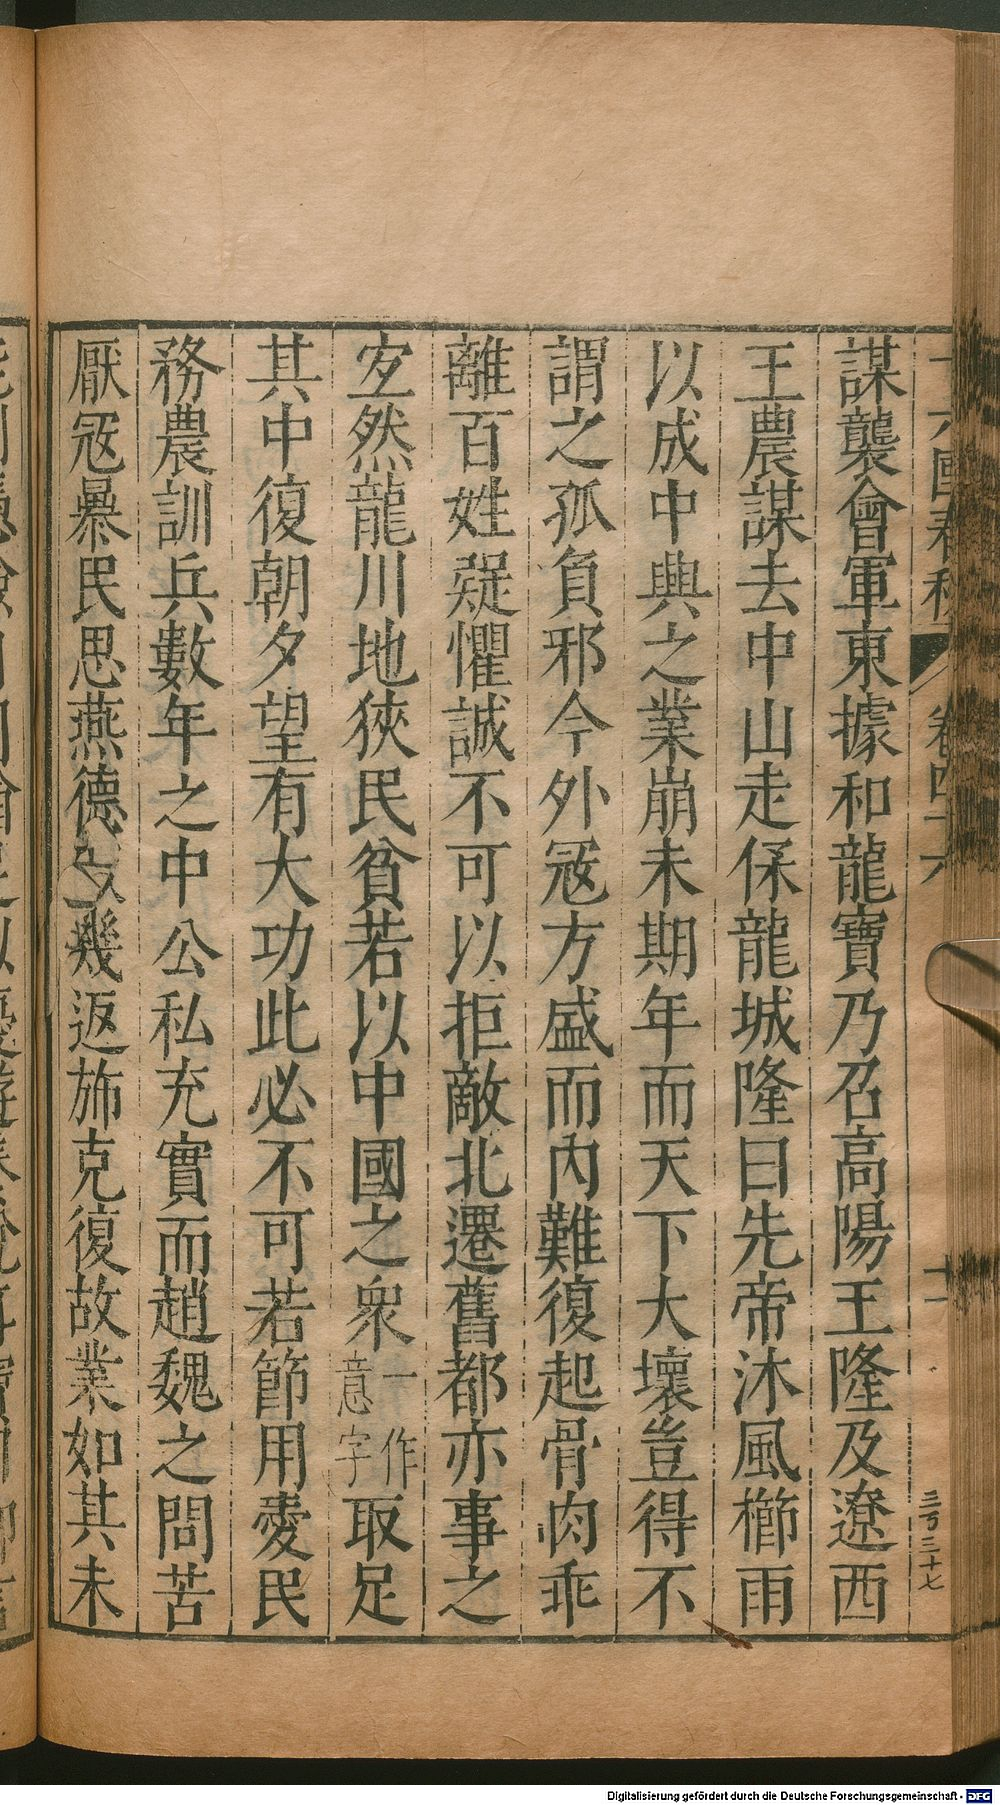 謀襲會軍東據和龍寶乃召高陽王隆及遼西
王農謀去中山走保龍城隆曰先帝沐風櫛雨
以成中興之業崩未期年而天下大壞豈得不
謂之孤負邪今外冦方盛而內難復起骨肉乖
離百姓疑懼誠不可以拒敵北遷舊都亦事之
宐然龍川地狹民貧若以中國之衆一作意字取足
其中復朝夕望有大功此必不可若節用愛民
務農訓兵數年之中公私充實而趙魏之間苦
厭冦暴民思燕德幾返斾克復故業如其未
十六國春秋 卷四十六 十一
Digitalisierung gefördert durch die Deutsche Forschungsgemeinschaft - DFG